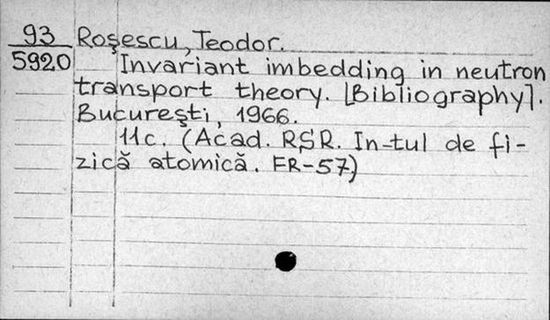 93 Roşescu, Teodor.
5920 Invariant imbedding in neutron
transport theory. [Bibliography].
Bucureşti, 1966.
11c. (Acad. RSR. In-tul de fi-
zică atomică. FR-57)